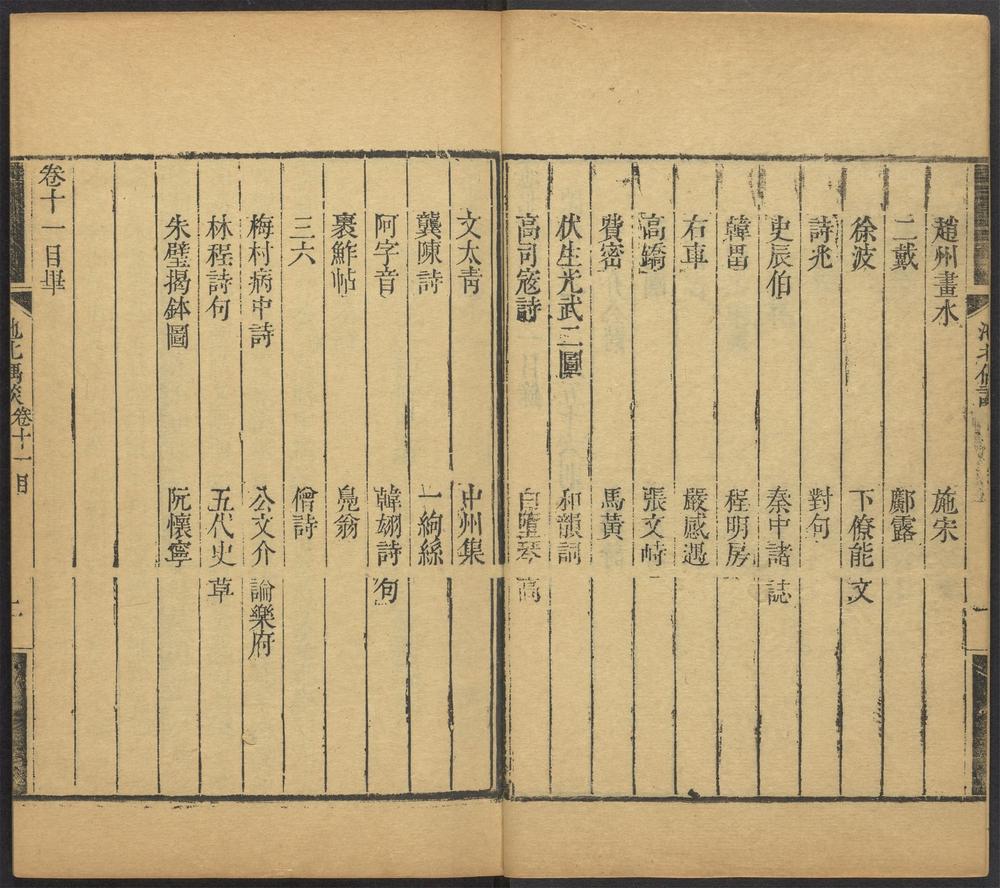 趙州畫水 施宋
二戴 鄺露
徐波 下僚能文
詩兆 對句
史辰伯 秦中諸誌
韓畕 程明房
右車 嚴感遇
高鐈 張文峙
費密 馬黃
伏生光武二圖 和韻詞
高司寇詩 白𡐊琴高
文太青 中州集
龔陳詩 一絇絲
阿字音 韓翃詩句
裹鮓帖 鳧翁
三六 僧詩
梅村病中詩 公文介論樂府
林程詩句 五代史草
朱璧揭鉢圖 阮懷寧
卷十一目畢
池北偶談 卷十一目 二